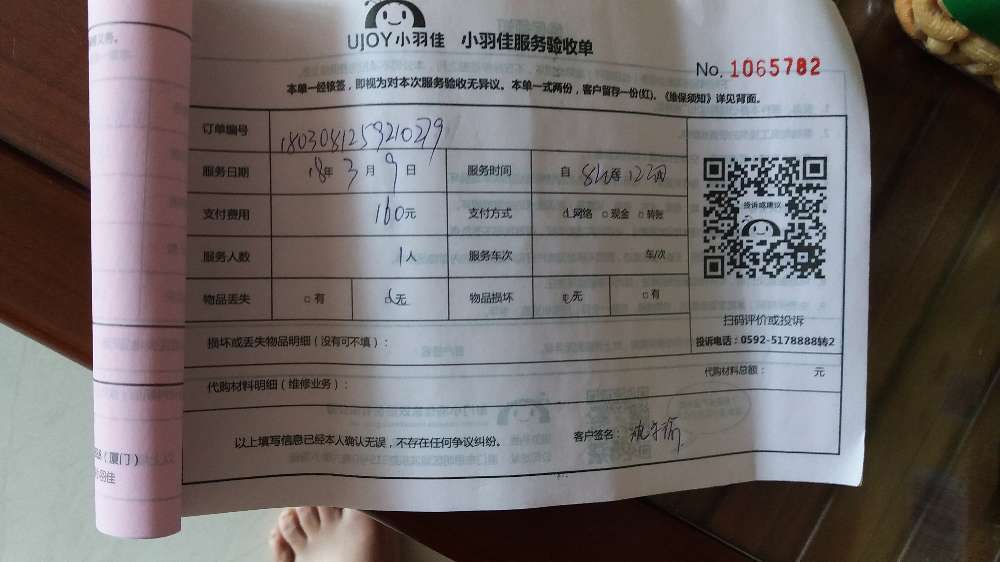 UJOY小羽佳 小羽佳服务验收单
No. 1065782
本单一经核签，即视为对本次服务验收无异议。本单一式两份，客户留存一份(红)。《维保须知》详见背面。
订单编号 1803081259210279
服务日期 18年 3月 9日 服务时间 自
支付费用 160元 支付方式 网络 □现金 □转账
服务人数 1人 服务车次 车/次
物品丢失 □有 无 物品损坏 无 □有
损坏或丢失物品明细（没有可不填）：
投诉或建议
扫码评价或投诉
投诉电话：0592-5178888转2
代购材料明细（维修业务）： 代购材料总额： 元
以上填写信息已经本人确认无误，不存在任何争议纠纷。 客户签名：
（厦门）
小羽佳